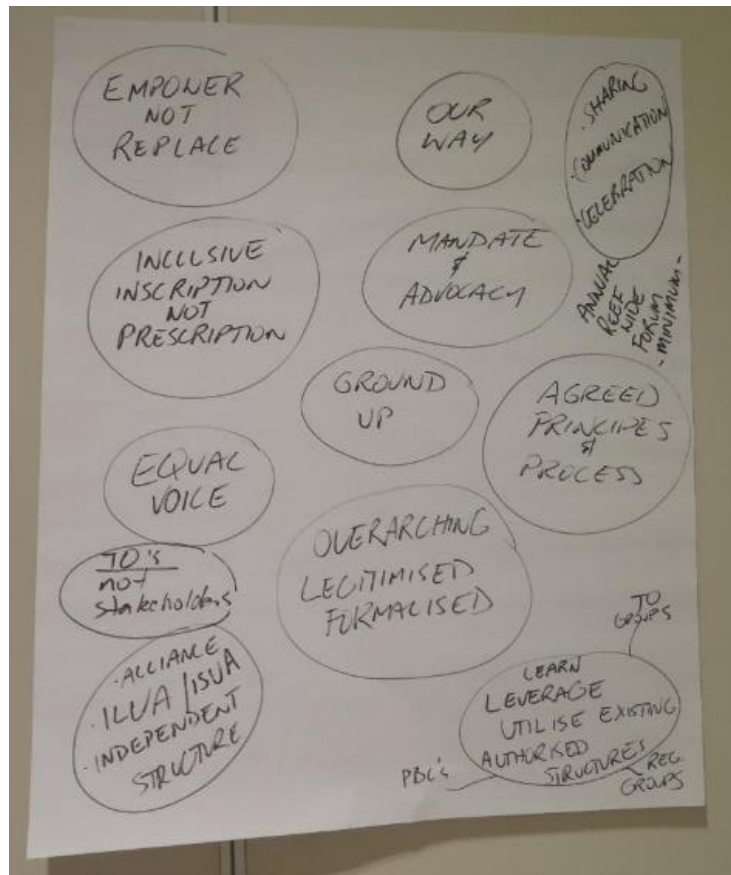 EMPOWER
NOT
REPLACE
OUR
WAY
· SHARING
· COMMUNICATION
· CELEBRATION
ANNUAL
REEF
WIDE
FORUM
- MINIMUM -
INCLUSIVE
INSCRIPTION
NOT
PRESCRIPTION
MANDATE
&
ADVOCACY
GROUND
UP
AGREED
PRINCIPLES
&
PROCESS
EQUAL
VOICE
TO's
not
stakeholders
OVERARCHING
LEGITIMISED
FORMALISED
· ALLIANCE
· ILUA / ISUA
· INDEPENDENT
STRUCTURE
TO
GROUPS
LEARN
LEVERAGE
UTILISE EXISTING
AUTHORISED
STRUCTURES
PBC's
REG
GROUPS